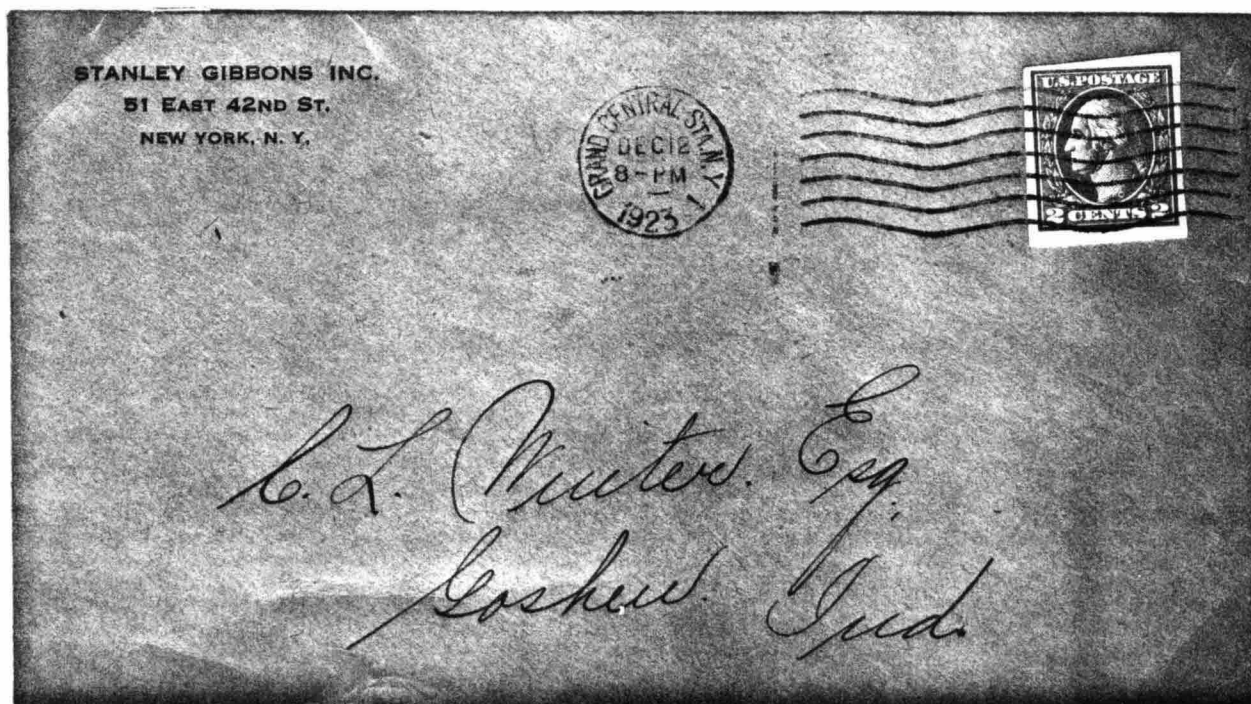 STANLEY GIBBONS INC.
51 EAST 42ND ST.
NEW YORK, N. Y.
GRAND CENTRAL STA. N.Y. 1
DEC 12
8-PM
1923
U.S. POSTAGE
2 CENTS 2
C. L. Winter. Esq.
Goshen. Ind.